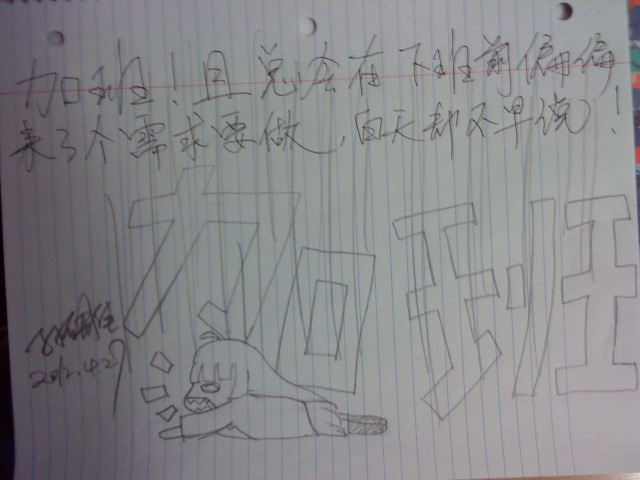 加班！且总会在下班前偏偏
来了个需求要做，白天却不早说！
加班
2012.4.29